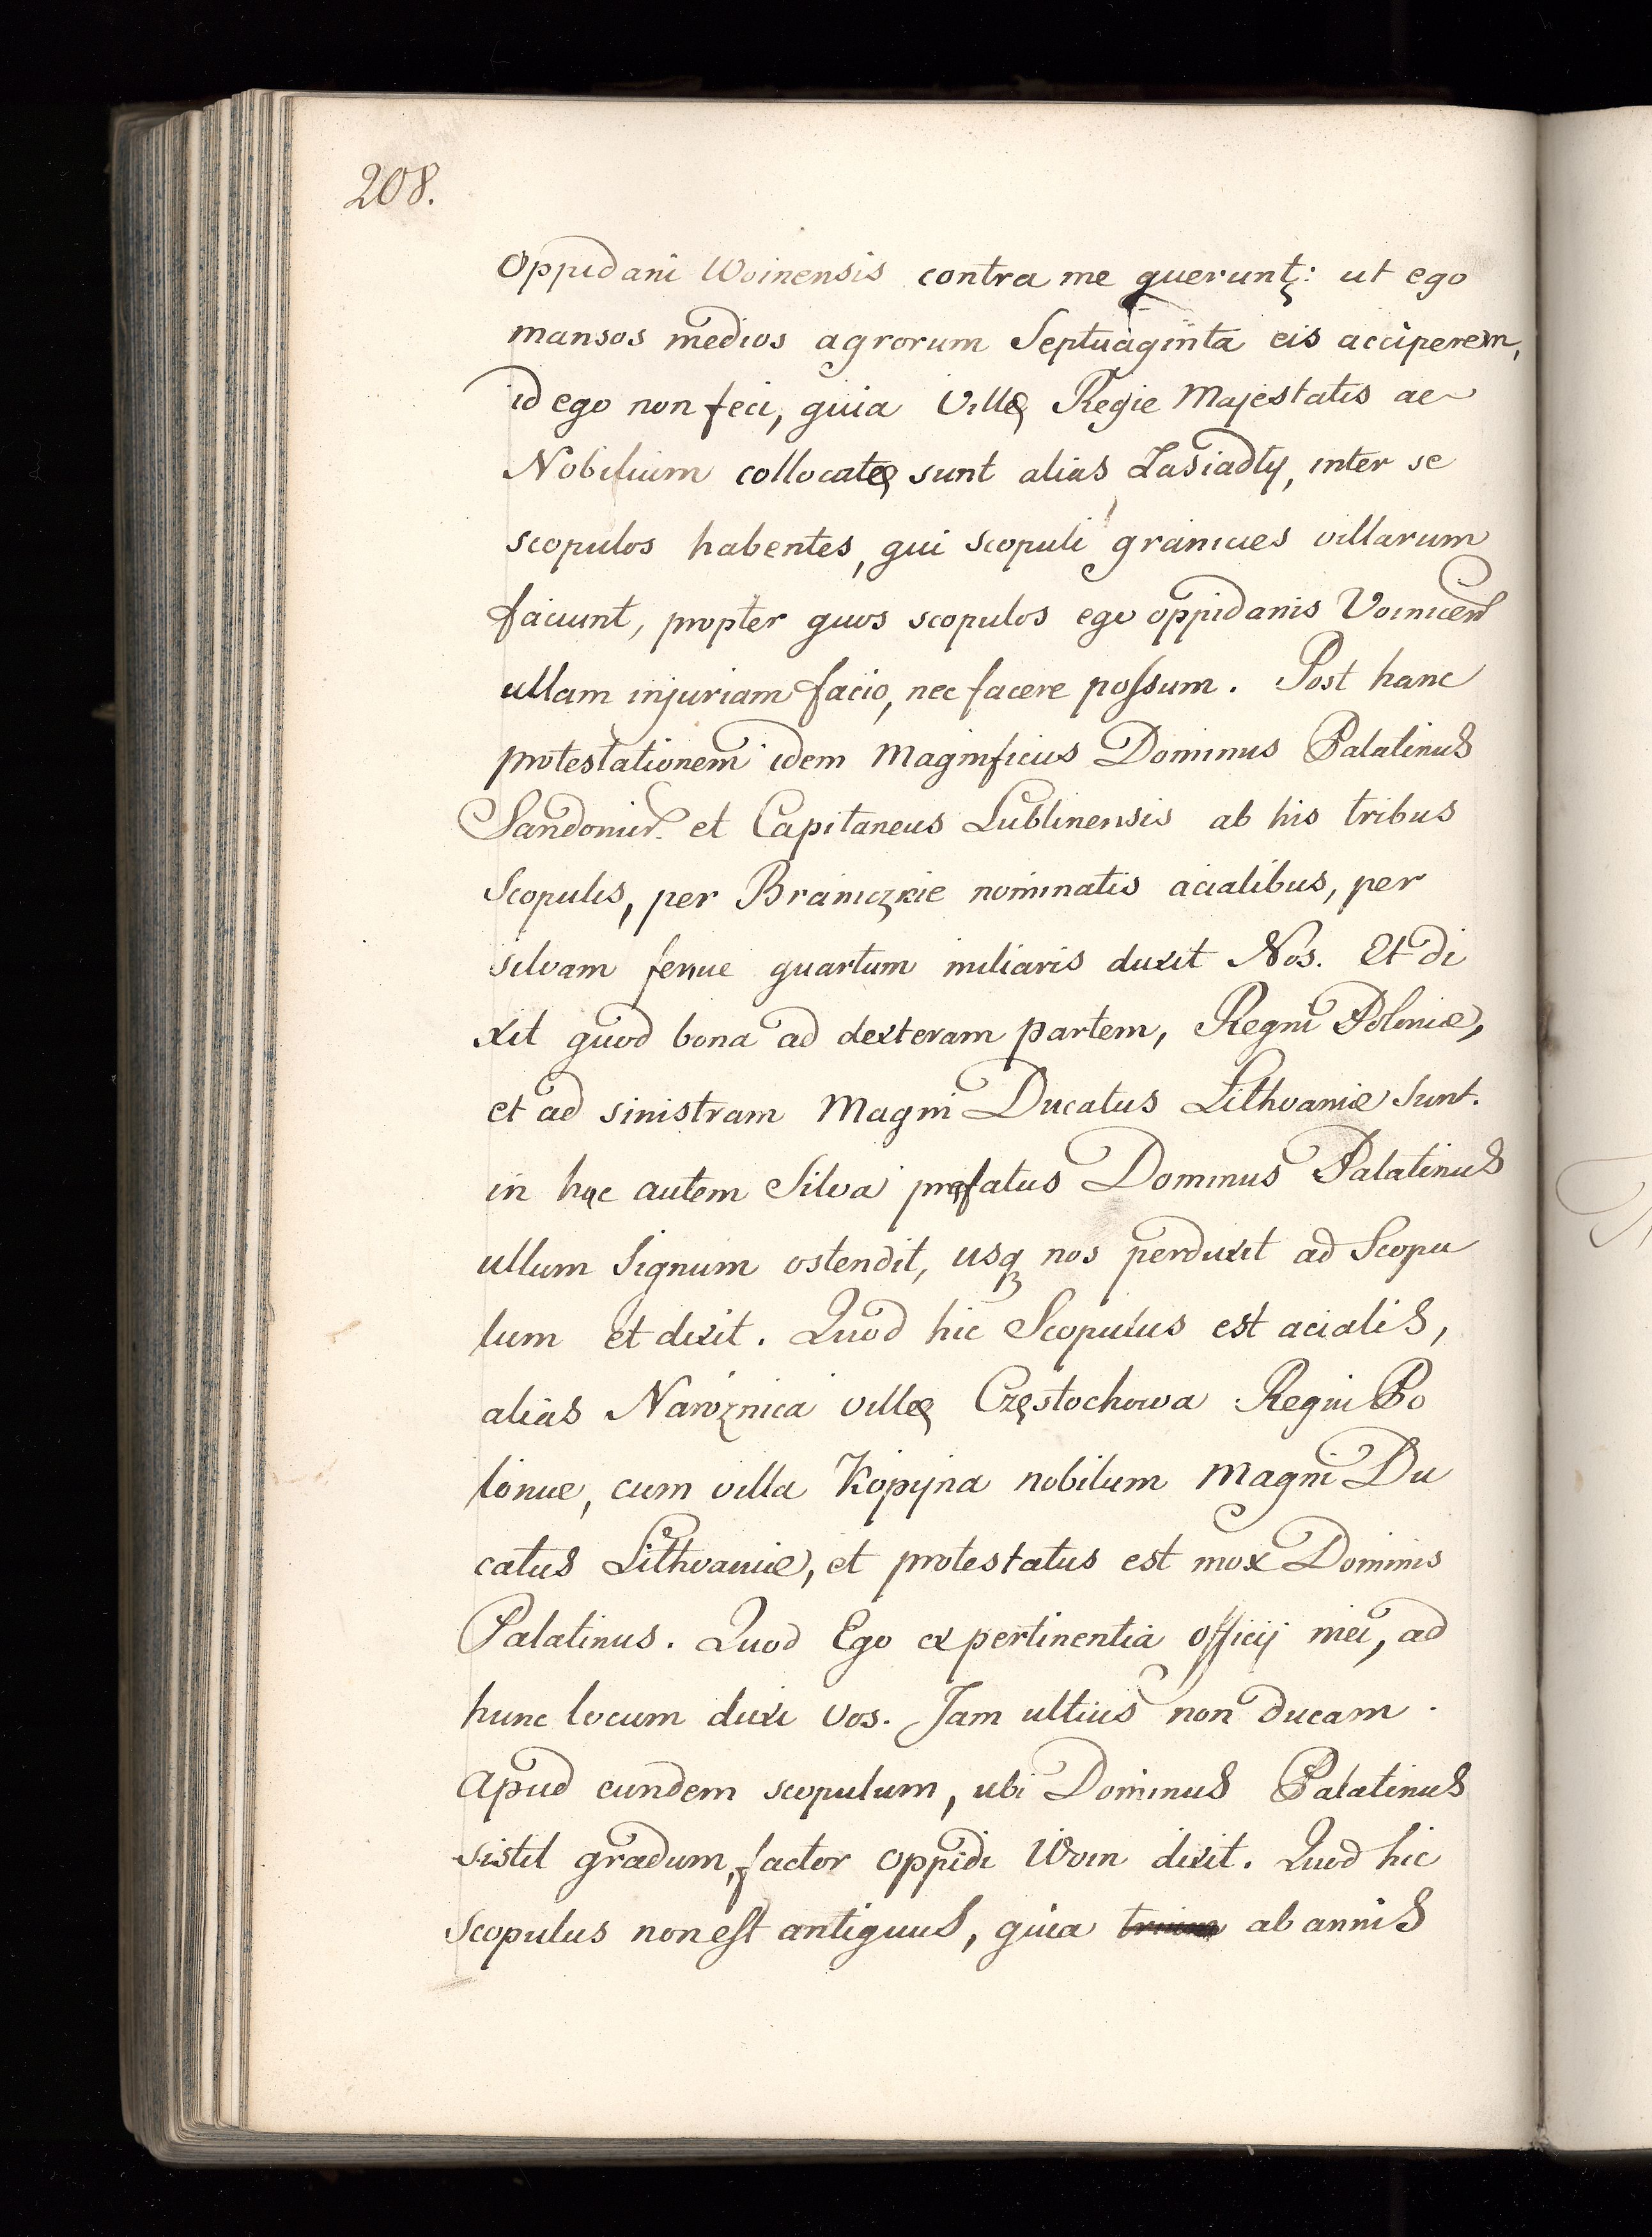 208.
Oppidani Woinensis contra me querunt: ut ego
mansos medios agrorum Septuaginta eis acciperem,
id ego non feci, quia Villę Regie Majestatis ac
Nobilium collocatę sunt alias Zasiadły, inter se
scopulos habentes, qui scopuli granicies villarum
faciunt, propter quos scopulos ego oppidanis Voinicen
ullam injuriam facio, nec facere possum. Post hanc
protestationem idem Magnificus Dominus Palatinus
Sandomir. et Capitaneus Lublinensis ab his tribus
Scopulis, per Braniczkie nominatis acialibus, per
silvam ferme quartum miliaris duxit Nos. Et di
xit quod bona ad dexteram partem, Regni Poloniæ,
et ad sinistram Magni Ducatus Lithvaniæ Sunt.
in hac autem Silva præfatus Dominus Palatinus
ullum Signum ostendit, usq nos perduxit ad Scopu
lum et dixit. Quod hic Scopulus est acialis,
alias Narożnica villę Częstochowa Regni Po
loniæ, cum villa Kopyna nobilum Magni Du
catus Lithvaniæ, et protestatus est mox Dominis
Palatinus. Quod Ego ex pertinentia officij mei, ad
hunc locum duxi vos. Jam ultius non ducam.
Apud eundem scopulum, ubi Dominus Palatinus
sistit gradum, factor oppidi Woin dixit. Quod hic
Scopulus non est antiquus, quia ab annis